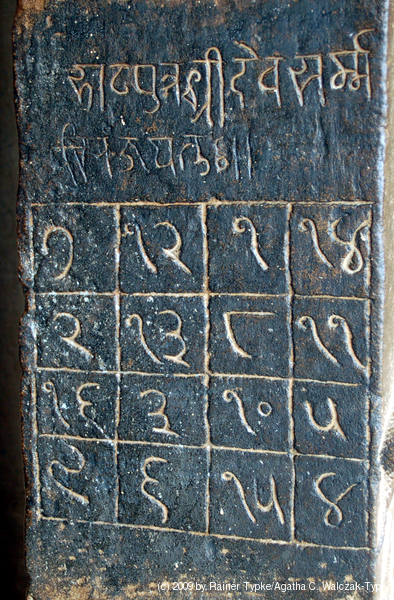 भाटपुत्रश्रीदेवसर्म्म
७ १२ १ १४
२ १३ ८ ११
१६ ३ १० ५
९ ६ १५ ४
(c) 2009 by Rainer Typke/Agatha C. Walczak-Typ